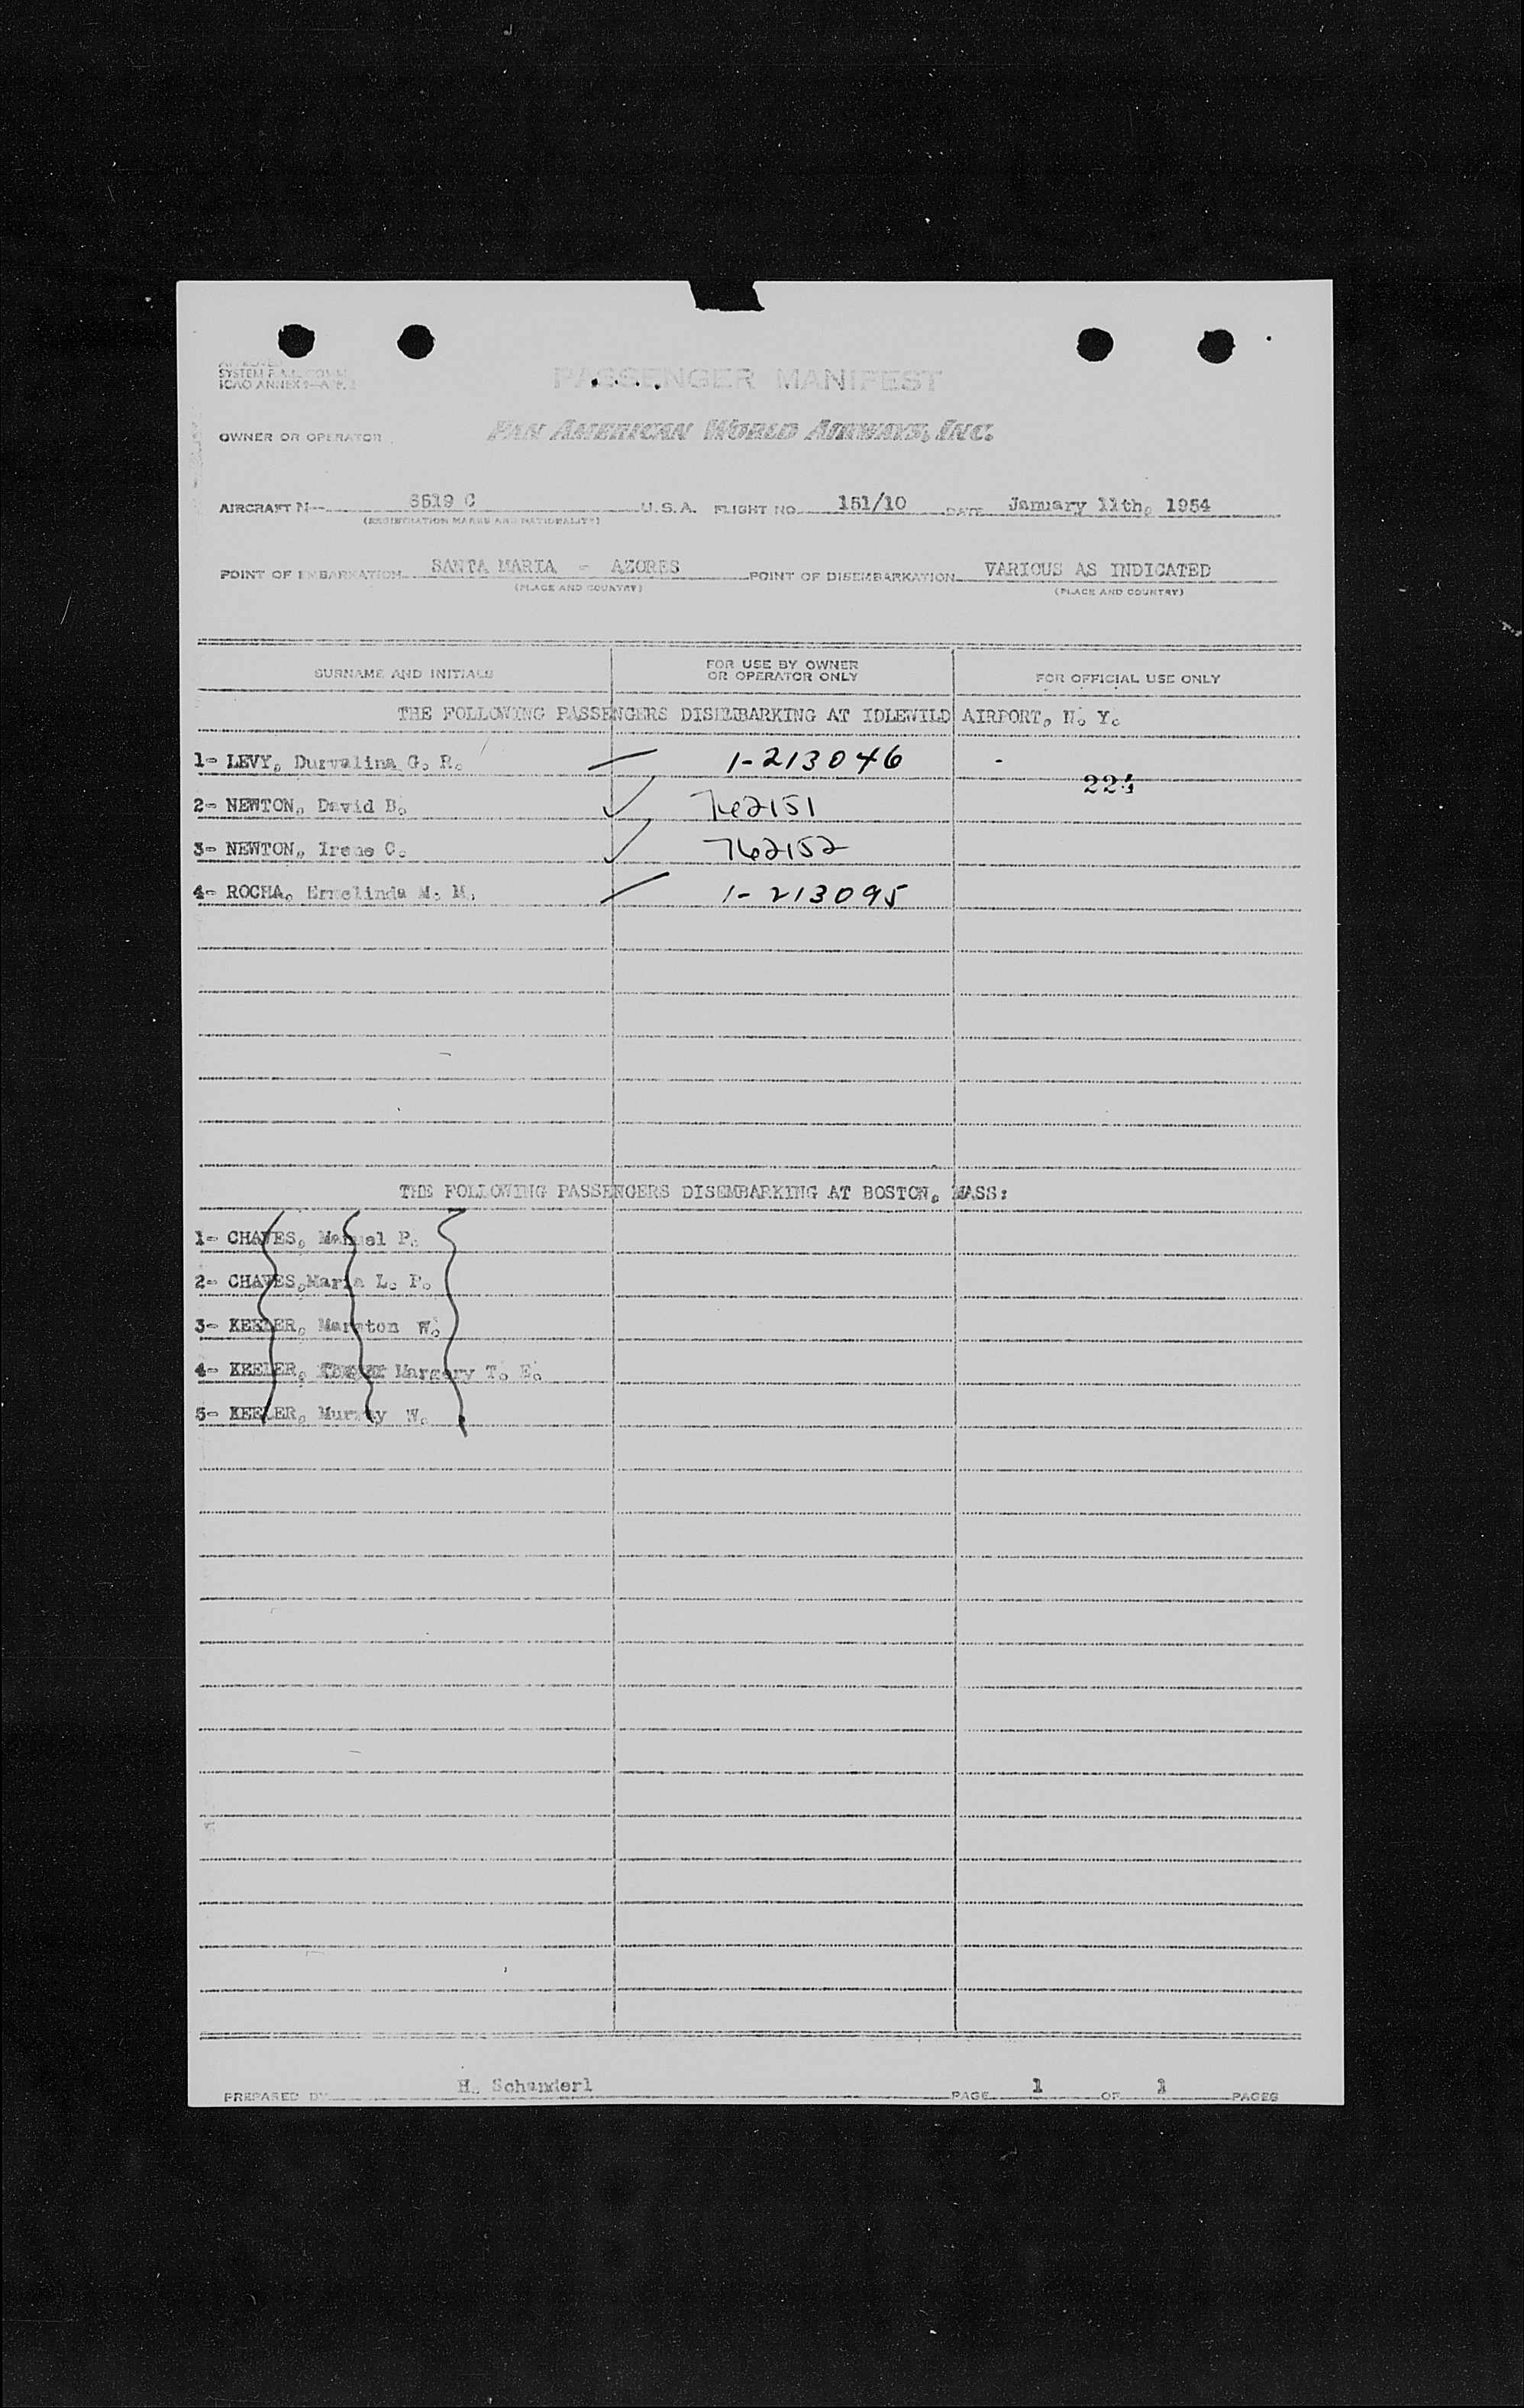 SYSTEM F.A.L. COMM.
ICAO ANNEX 9—APP. 2
PASSENGER MANIFEST
OWNER OR OPERATOR PAN AMERICAN WORLD AIRWAYS, INC.
AIRCRAFT N— 6519 C U.S.A. FLIGHT NO. 151/10 DATE January 11th, 1954
(REGISTRATION MARKS AND NATIONALITY)
POINT OF EMBARKATION SANTA MARIA - AZORES POINT OF DISEMBARKATION VARIOUS AS INDICATED
(PLACE AND COUNTRY) (PLACE AND COUNTRY)
SURNAME AND INITIALS FOR USE BY OWNER OR OPERATOR ONLY FOR OFFICIAL USE ONLY
THE FOLLOWING PASSENGERS DISEMBARKING AT IDLEWILD AIRPORT, N. Y.
1- LEVY, Durvalina G. R. 1-213046
224
2- NEWTON, David B. 762151
3- NEWTON, Irene C. 762152
4- ROCHA, Ermelinda M. M. 1-213095
THE FOLLOWING PASSENGERS DISEMBARKING AT BOSTON, MASS:
1- CHAVES, Manuel P.
2- CHAVES,Maria L. P.
3- KEELER, Marston W.
4- KEELER, Margery T. E.
5- KEELER, Murray W.
PREPARED BY H. Schanderl PAGE 1 OF 1 PAGES